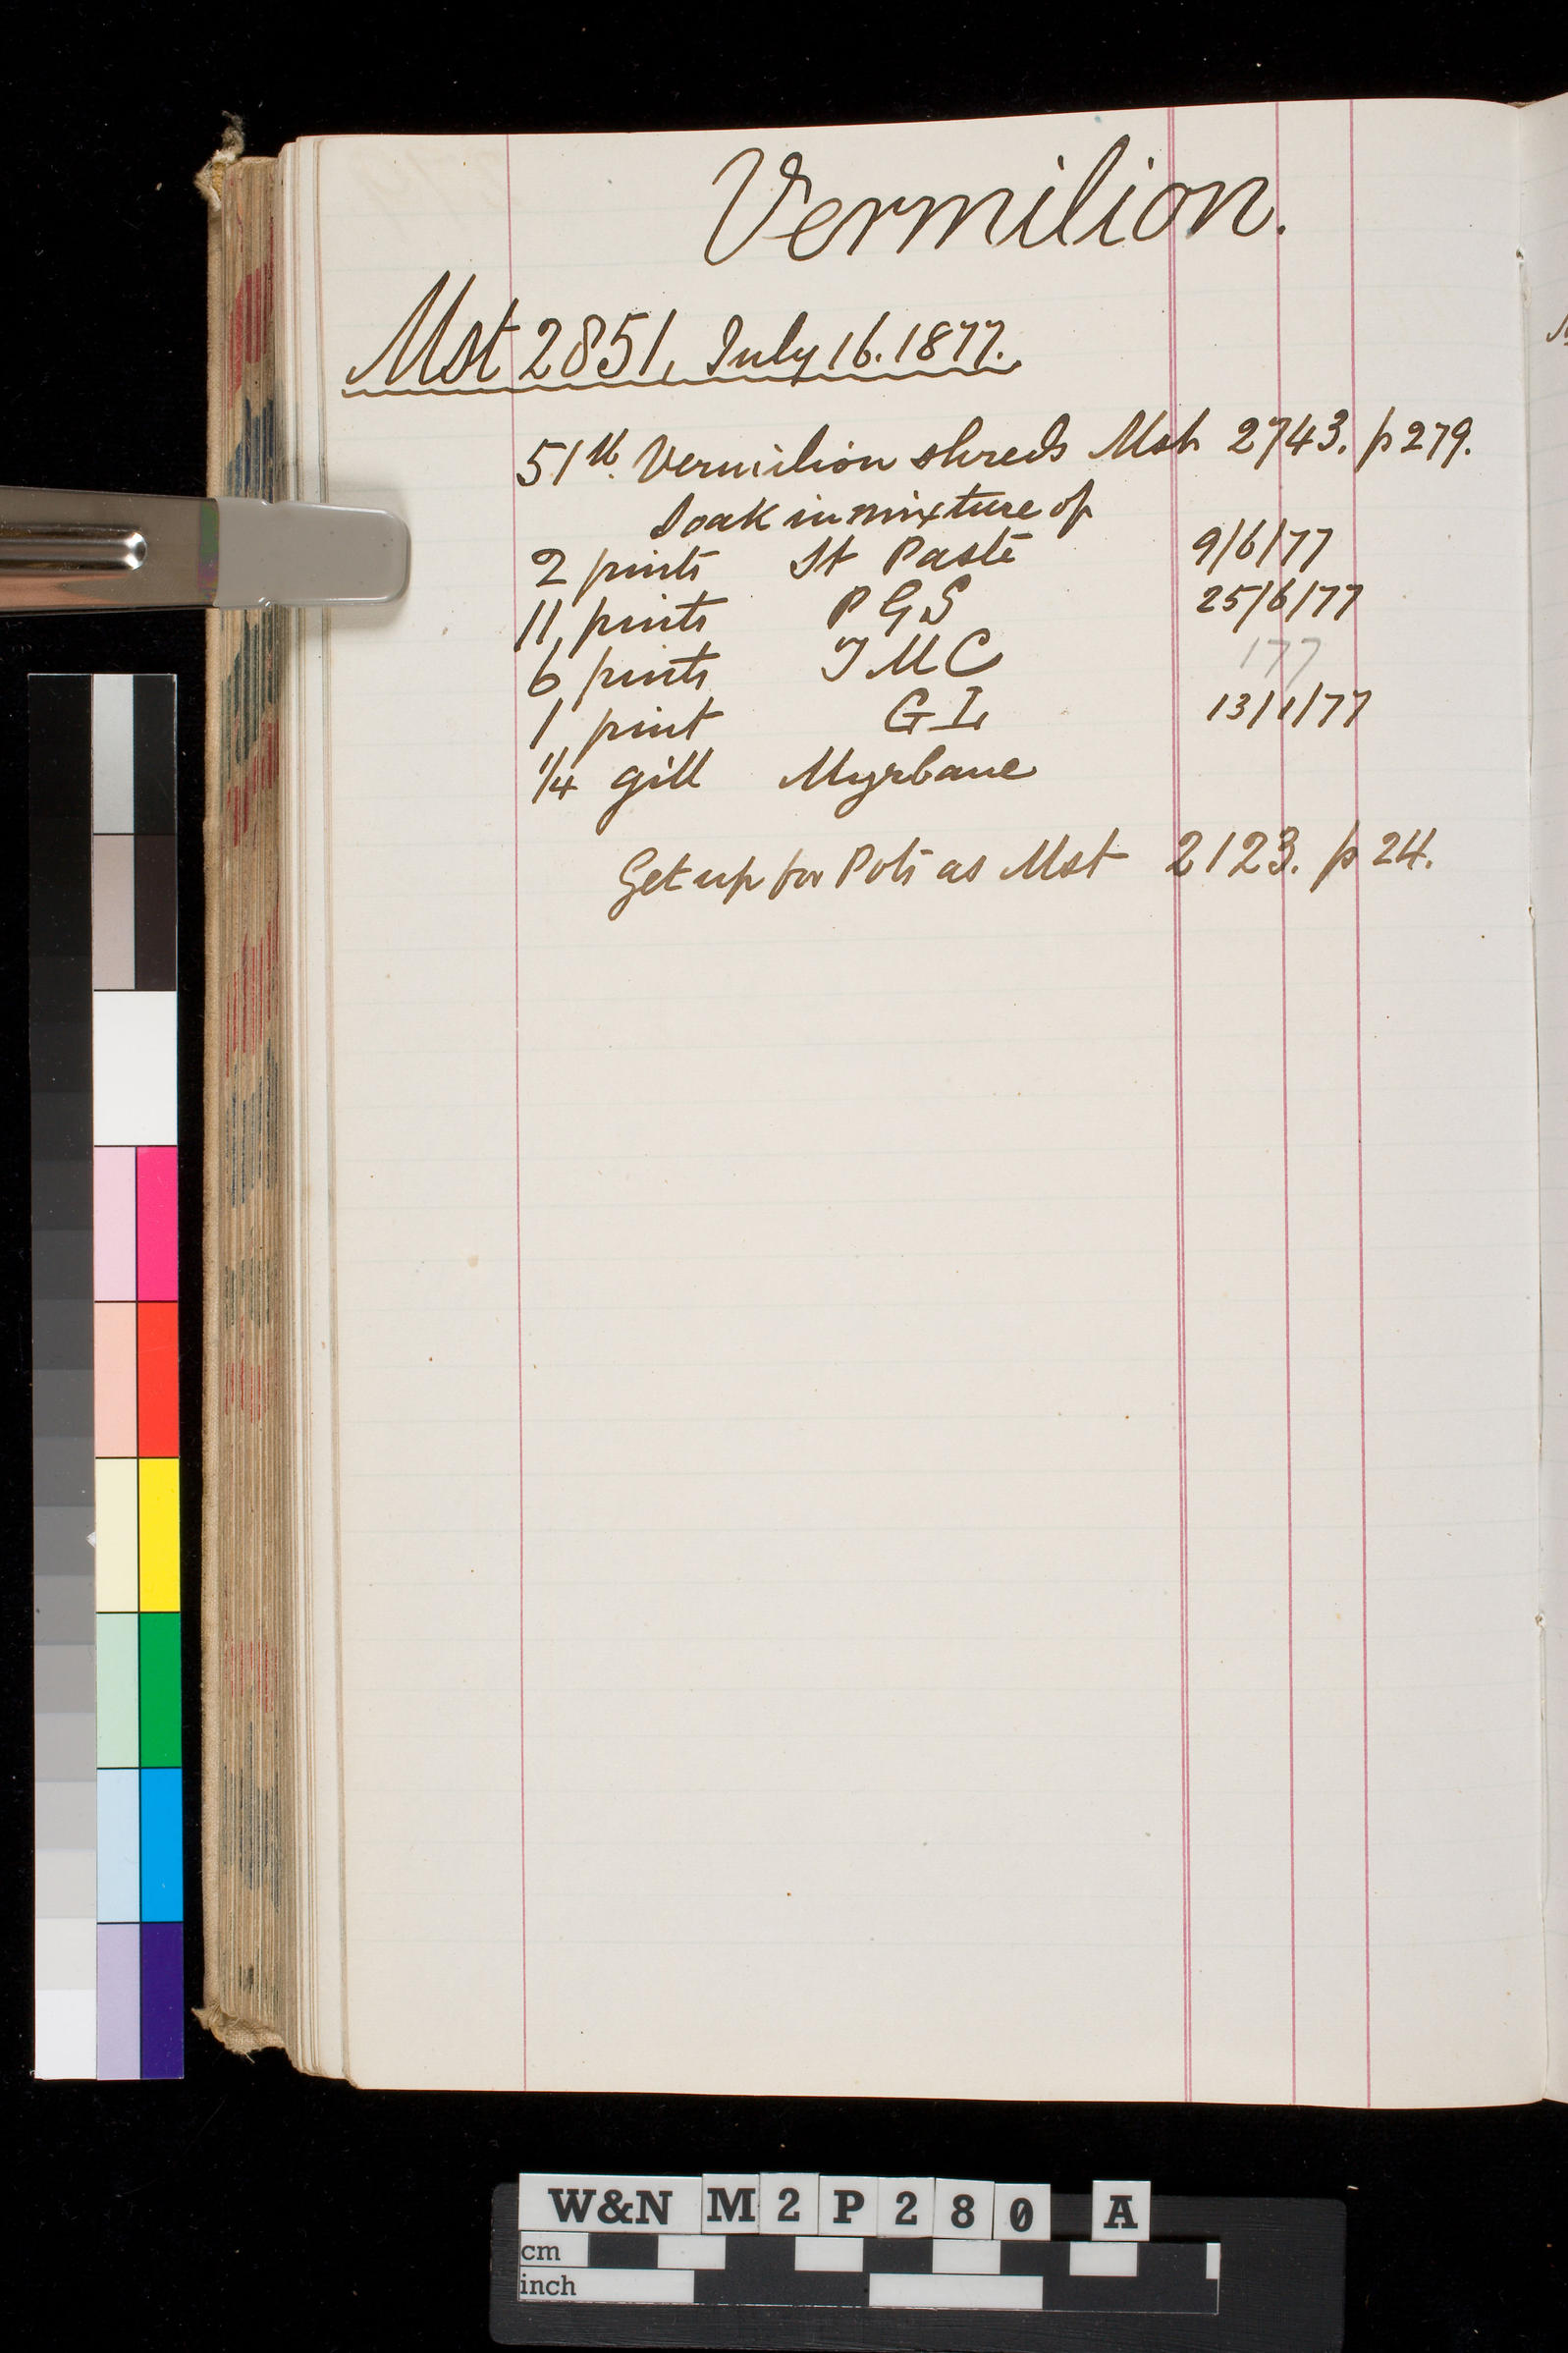 Vermilion.
Mst 2851, July 16. 1877.
51 lb. Vermilion shreds Mst 2743. p 279.
Soak in mixture of
2 pints St Paste 9/6/77
11 pints P G S 25/6/77
6 pints I M C /77
1 pint G I, 13/1/77
1/4 gill Myrbane
Get up for Pots as Mst 2123. p 24.
W&N M2P280 A
cm
inch